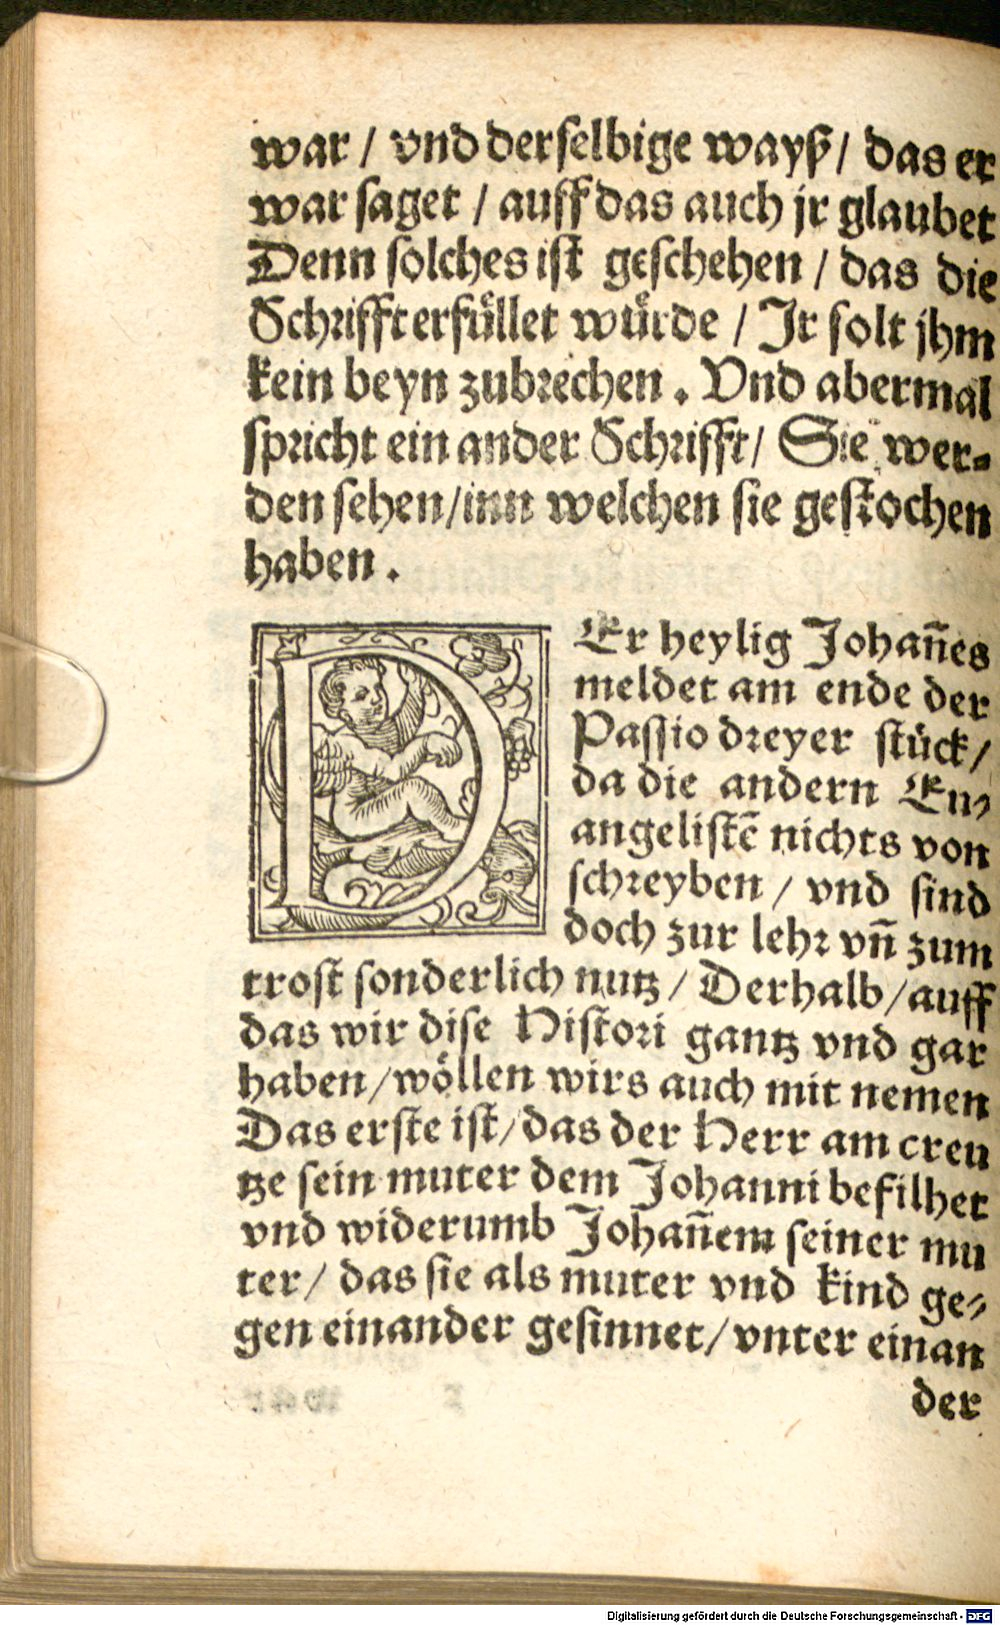 war / vnd derselbige wayß / das er
war saget / auff das auch jr glaubet
Denn solches ist geschehen / das die
Schrifft erfüllet würde / Jr solt jhm
kein beyn zubrechen . Vnd abermal
spricht ein ander Schrifft / Sie wer-
den sehen / inn welchen sie gestochen
haben .
DEr heylig Johañes
meldet am ende der
Passio dreyer stück /
da die andern Eu-
angelistẽ nichts von
schreyben / vnd sind
doch zur lehr vñ zum
trost sonderlich nutz / Derhalb / auff
das wir dise Histori gantz vnd gar
haben / wöllen wirs auch mit nemen
Das erste ist / das der Herr am creu
tze sein muter dem Johanni befilhet
vnd widerumb Johañem seiner mu
ter / das sie als muter vnd kind ge-
gen einander gesinnet / vnter einan
der
Digitalisierung gefördert durch die Deutsche Forschungsgemeinschaft - DFG